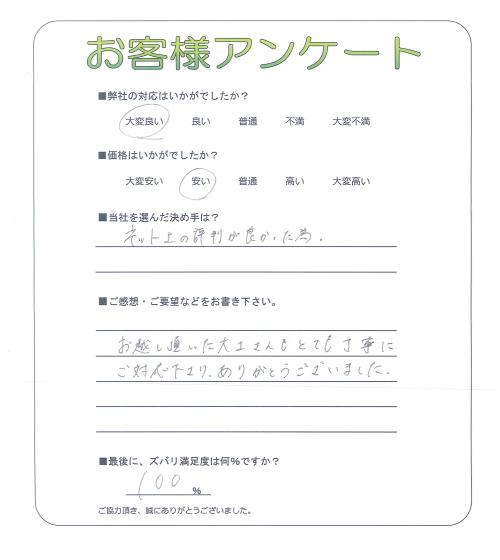 お客様アンケート
■弊社の対応はいかがでしたか？
大変良い 良い 普通 不満 大変不満
■価格はいかがでしたか？
大変安い 安い 普通 高い 大変高い
■当社を選んだ決め手は？
ネット上の評判が良かった為.
■ご感想・ご要望などをお書き下さい。
お越し頂いた大工さんもとても丁寧に
ご対応下さり、ありがとうございました.
■最後に、ズバリ満足度は何%ですか？
100 %
ご協力頂き、誠にありがとうございました。